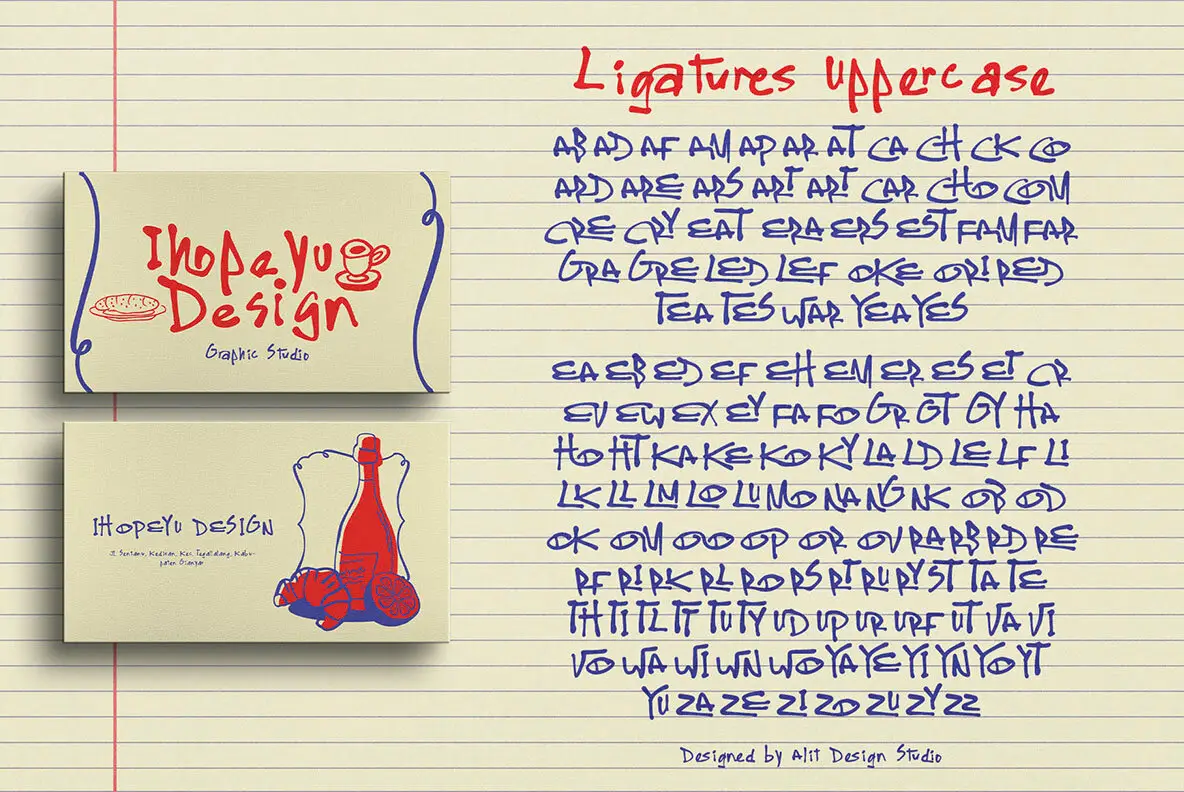 Ligatures Uppercase
AB AD AF AM AP AR AT CA CH CK CO
ARD ARE ARS ART ART CAR CHO COM
CRE CRY EAT ERA ERS EST FAM FAR
GRA GRE LED LEF OKE ORI RED
TEA TES WAR YEA YES
EA EB ED EF EH EM ER ES ET CR
EV EW EX EY FA FO GR GT GY HA
HO HT KA KE KO KY LA LD LE LF LI
LK LL LM LO LU MO NA NG NK OB OD
OK OM OO OP OR OV RA RB RD RE
RF RI RK RL RO RS RT RU RY ST TA TE
TH TI TL TT TU TY UD UP UR URF UT VA VI
VO WA WI WN WO YA YE YI YN YO YT
YU ZA ZE ZI ZO ZU ZY ZZ
Designed by Alit Design Studio
Ihopeyu
Design
Graphic Studio
IHOPEYU DESIGN
Jl. Sentanu, Kedisan, Kec. Tegallalang, Kabu-
paten Gianyar